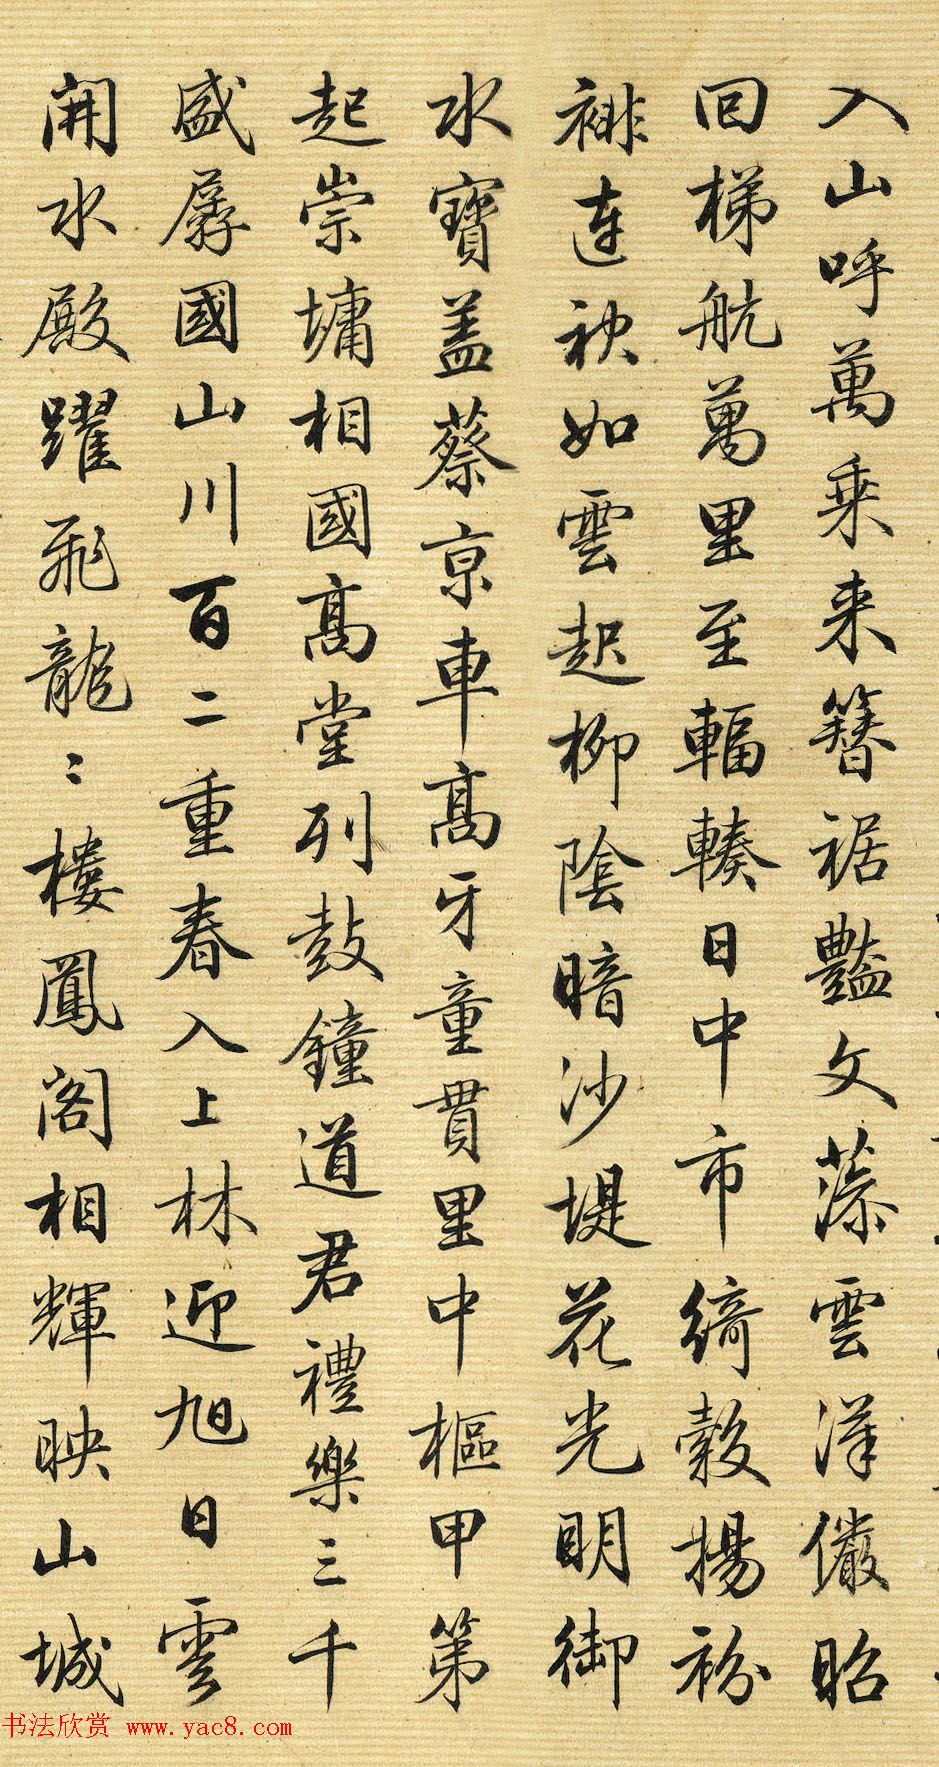 入山呼萬乗来簪裾豔文藻雲漢儼昭
回梯航萬里至輻輳日中市綺縠揚衯
裶连袂如雲起柳陰暗沙堤花光明御
水寶盖蔡京車髙牙童貫里中樞甲第
起崇墉相國髙堂列鼓鐘道君禮樂三千
盛孱國山川百二重春入上林迎旭日雲
開水殿躍飛龍〻樓鳳阁相輝映山城
书法欣赏 www.yac8.com